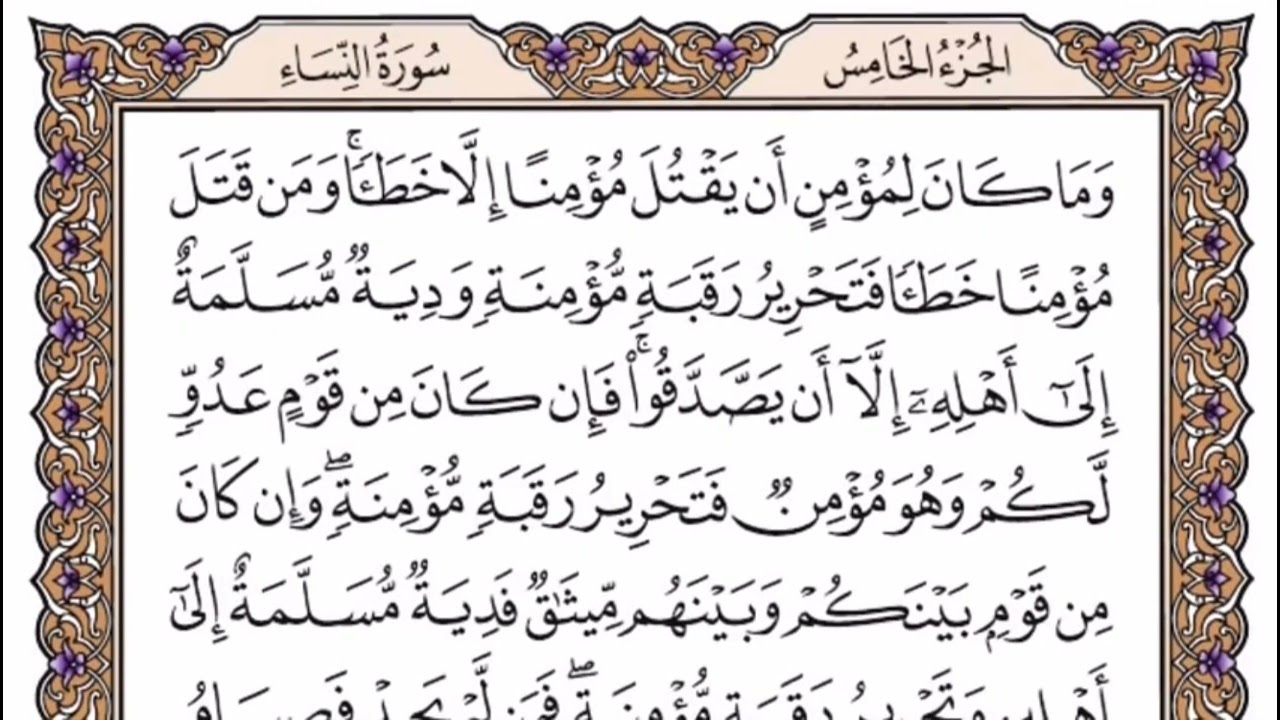 الجُزْءُ الخَامِسُ
سُورَةُ النِّسَاءِ
وَمَا كَانَ لِمُؤْمِنٍ أَن يَقْتُلَ مُؤْمِنًا إِلَّا خَطَـًٔاۚ وَمَن قَتَلَ
مُؤْمِنًا خَطَـًٔا فَتَحْرِيرُ رَقَبَةٍ مُّؤْمِنَةٍ وَدِيَةٌ مُّسَلَّمَةٌ
إِلَىٰٓ أَهْلِهِۦٓ إِلَّآ أَن يَصَّدَّقُوا۟ۚ فَإِن كَانَ مِن قَوْمٍ عَدُوٍّ
لَّكُمْ وَهُوَ مُؤْمِنٌ فَتَحْرِيرُ رَقَبَةٍ مُّؤْمِنَةٍۖ وَإِن كَانَ
مِن قَوْمٍۭ بَيْنَكُمْ وَبَيْنَهُم مِّيثَـٰقٌ فَدِيَةٌ مُّسَلَّمَةٌ إِلَىٰٓ
أَهْلِهِۦ وَتَحْرِيرُ رَقَبَةٍ مُّؤْمِنَةٍۖ فَمَن لَّمْ يَجِدْ فَصِيَامُ